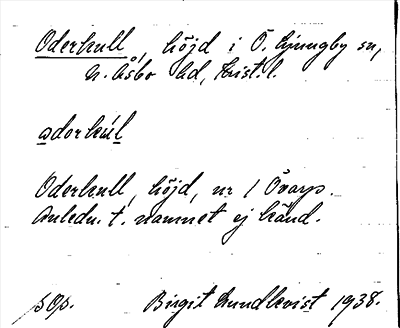 Oderkull, höjd i Ö. Ljungby sn,
N. Åsbo hd, Krist. l.
adorkúl
Oderkull, höjd, nr 1 Övarp.
Anledn. t. namnet ej känd.
Birgit Lundkvist 1938.